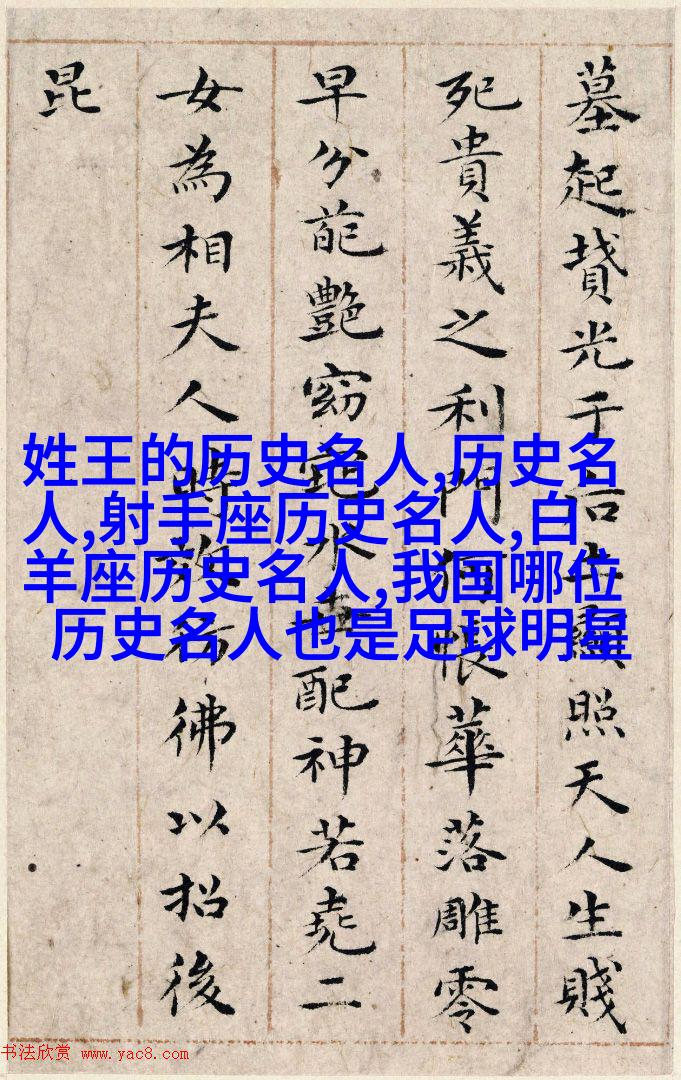 墓起墳光于后土顯照天人生賤
死貴義之利門何悵華落雕零
早分葩艷窈窕永世配神若堯二
女為相夫人時效彿以招後
昆
姓王的历史名人,历史名
人,射手座历史名人,白
羊座历史名人,我国哪位
历史名人也是足球明星
书法欣赏 www.yac8.com